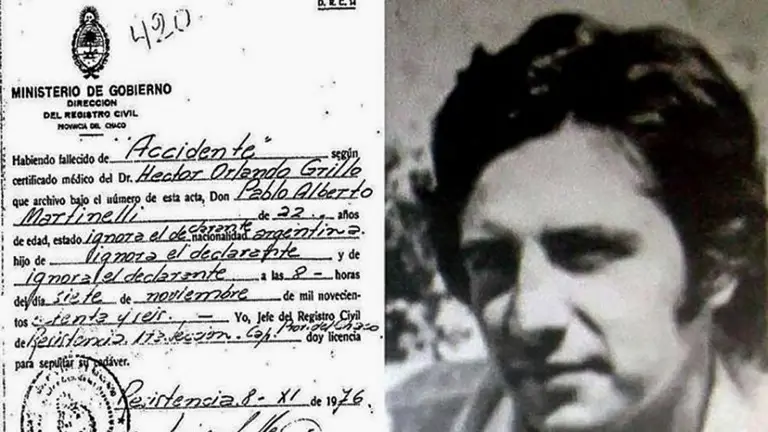 D. R. C. H
420
MINISTERIO DE GOBIERNO
DIRECCION
DEL REGISTRO CIVIL
PROVINCIA DEL CHACO
Habiendo fallecido de "Accidente" según
certificado médico del Dr. Hector Orlando Grillo
que archivo bajo el número de esta acta, Don Pablo Alberto
Martinelli de 22 años
de edad, estado ignora el declarante nacionalidad argentina.
hijo de ignora el declarante y de
ignora el declarante a las 8 - horas
del día siete de noviembre de mil novecien-
tos setenta y seis. — Yo, Jefe del Registro Civil
de Resistencia 1ra seccion. Cap. Prov. del Chaco doy licencia
para sepultar su cadáver.
Resistencia 8 - XI de 1976